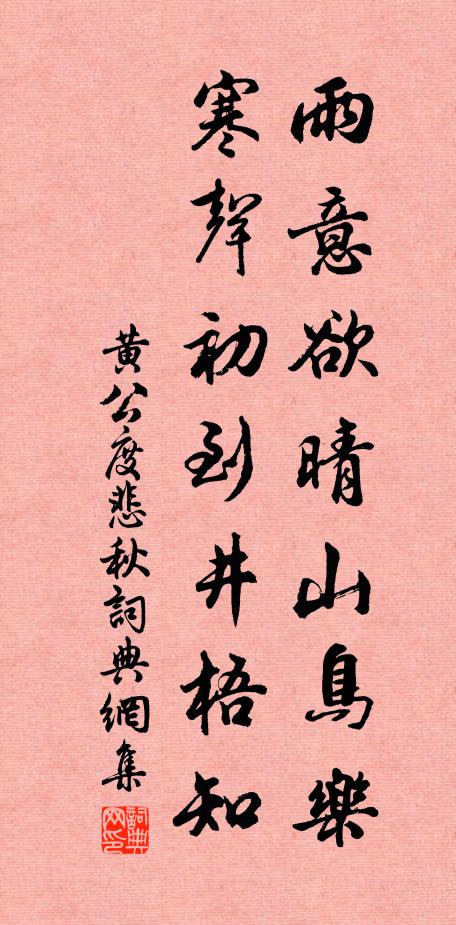 雨意欲晴山鳥樂
寒聲初到井梧知
黃公度悲秋詞典網集
詞典网印